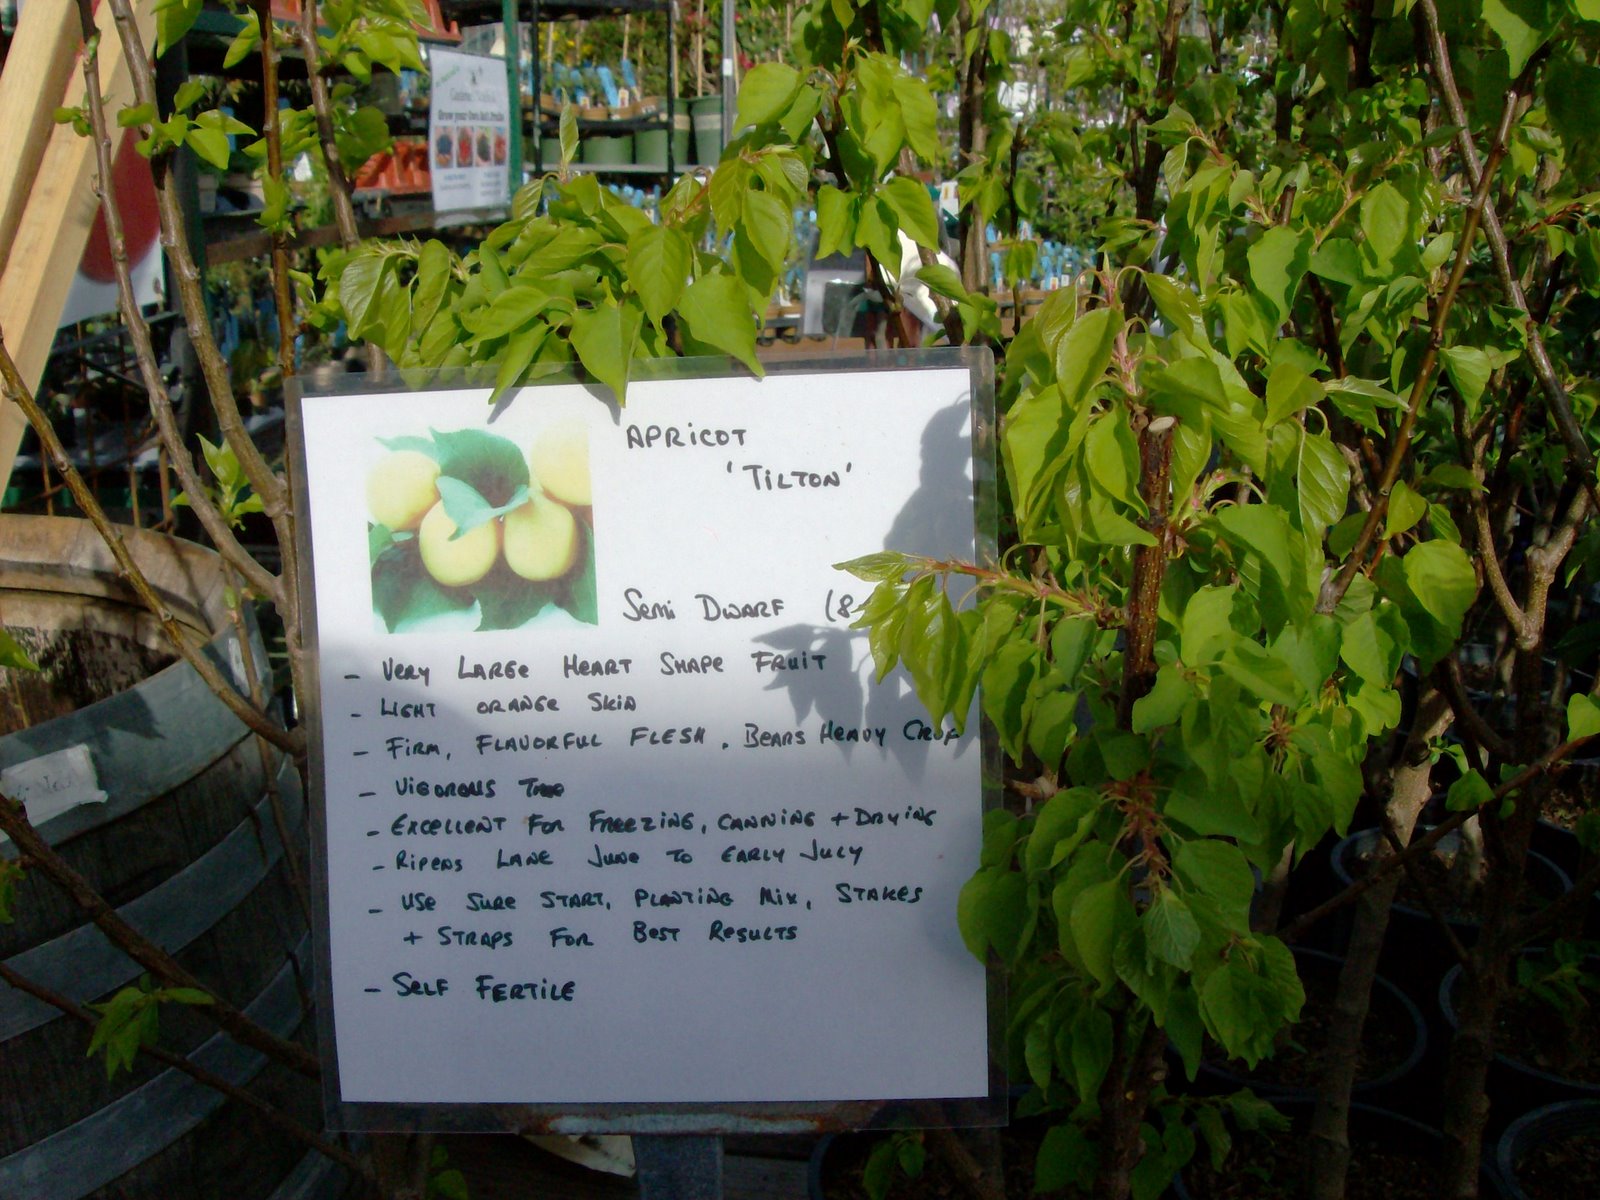 Grow your Own
APRICOT
'TILTON'
SEMI DWARF (8
- VERY LARGE HEART SHAPE FRUIT
- LIGHT ORANGE SKIN
- FIRM, FLAVORFUL FLESH. BEARS HEAVY CROP
- VIGOROUS TREE
- EXCELLENT FOR FREEZING, CANNING + DRYING
- RIPENS LANE JUNE TO EARLY JULY
- USE SURE START, PLANTING MIX, STAKES
+ STRAPS FOR BEST RESULTS
- SELF FERTILE